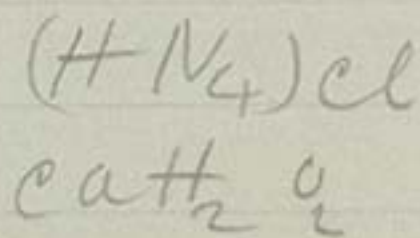 (HN₄)Cl
CaH₂O₂